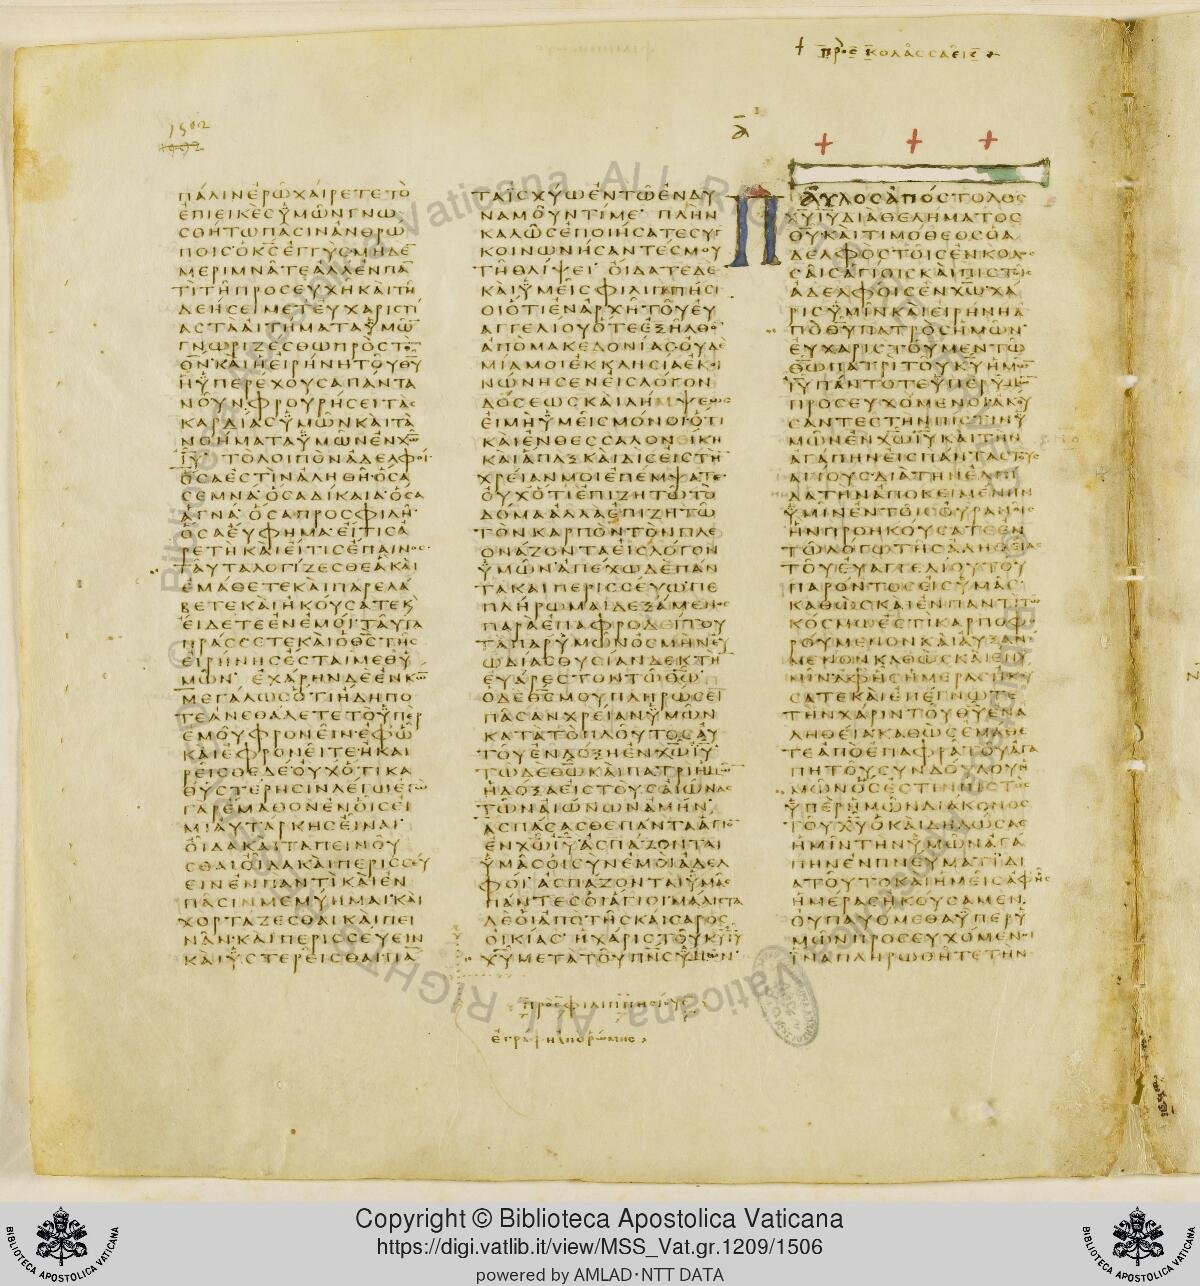 + προς κολασσαεις
1502
ΠΑΛΙΝΕΡΩΧΑΙΡΕΤΕΤΟ
ΕΠΙΕΙΚΕΣΥΜΩΝΓΝΩ
ΣΘΗΤΩΠΑΣΙΝΑΝΘΡΩ
ΠΟΙΣΟΚΣΕΓΓΥΣΜΗΔΕ
ΜΕΡΙΜΝΑΤΕΑΛΛΕΝΠΑ
ΤΙΤΗΠΡΟΣΕΥΧΗΚΑΙΤΗ
ΔΕΗΣΕΙΜΕΤΕΥΧΑΡΙΣΤΙ
ΑΣΤΑΑΙΤΗΜΑΤΑΥΜΩ
ΓΝΩΡΙΖΕΣΘΩΠΡΟΣΤΟ
ΘΝΚΑΙΗΕΙΡΗΝΗΤΟΥΘΥ
ΗΥΠΕΡΕΧΟΥΣΑΠΑΝΤΑ
ΝΟΥΝΦΡΟΥΡΗΣΕΙΤΑΣ
ΚΑΡΔΙΑΣΥΜΩΝΚΑΙΤΑ
ΝΟΗΜΑΤΑΥΜΩΝΕΝΧΩ
ΙΥ ΤΟΛΟΙΠΟΝΑΔΕΛΦΟΙ
ΟΣΑΕΣΤΙΝΑΛΗΘΗΟΣΑ
ΣΕΜΝΑΟΣΑΔΙΚΑΙΑΟΣΑ
ΑΓΝΑΟΣΑΠΡΟΣΦΙΛΗ
ΟΣΑΕΥΦΗΜΑΕΙΤΙΣΑ
ΡΕΤΗΚΑΙΕΙΤΙΣΕΠΑΙΝΟΣ
ΤΑΥΤΑΛΟΓΙΖΕΣΘΕΑΚΑΙ
ΕΜΑΘΕΤΕΚΑΙΠΑΡΕΛΑ
ΒΕΤΕΚΑΙΗΚΟΥΣΑΤΕΚ
ΕΙΔΕΤΕΕΝΕΜΟΙΤΑΥΤΑ
ΠΡΑΣΣΕΤΕΚΑΙΟΘΣΤΗΣ
ΕΙΡΗΝΗΣΕΣΤΑΙΜΕΘΥ
ΜΩΝ ΕΧΑΡΗΝΔΕΕΝΚΩ
ΜΕΓΑΛΩΣΟΤΙΗΔΗΠΟ
ΤΕΑΝΕΘΑΛΕΤΕΤΟΥΠΕΡ
ΕΜΟΥΦΡΟΝΕΙΝΕΦΩ
ΚΑΙΕΦΡΟΝΕΙΤΕΗΚΑΙ
ΡΕΙΣΘΕΔΕΟΥΧΟΤΙΚΑ
ΘΥΣΤΕΡΗΣΙΝΛΕΓΩΕΓΩ
ΓΑΡΕΜΑΘΟΝΕΝΟΙΣΕΙ
ΜΙΑΥΤΑΡΚΗΣΕΙΝΑΙ
ΟΙΔΑΚΑΙΤΑΠΕΙΝΟΥ
ΣΘΑΙΟΙΔΑΚΑΙΠΕΡΙΣΣΕΥ
ΕΙΝΕΝΠΑΝΤΙΚΑΙΕΝ
ΠΑΣΙΝΜΕΜΥΗΜΑΙΚΑΙ
ΧΟΡΤΑΖΕΣΘΑΙΚΑΙΠΕΙ
ΝΑΝΚΑΙΠΕΡΙΣΣΕΥΕΙΝ
ΚΑΙΥΣΤΕΡΕΙΣΘΑΙΠΑ
ΤΑΙΣΧΥΩΕΝΤΩΕΝΔΥ
ΝΑΜΟΥΝΤΙΜΕ ΠΛΗΝ
ΚΑΛΩΣΕΠΟΙΗΣΑΤΕΣΥΓ
ΚΟΙΝΩΝΗΣΑΝΤΕΣΜΟΥ
ΤΗΘΛΙΨΕΙ ΟΙΔΑΤΕΔΕ
ΚΑΙΥΜΕΙΣΦΙΛΙΠΠΗΣΙ
ΟΙΟΤΙΕΝΑΡΧΗΤΟΥΕΥ
ΑΓΓΕΛΙΟΥΟΤΕΕΞΗΛΘΟ
ΑΠΟΜΑΚΕΔΟΝΙΑΣΟΥΔΕ
ΜΙΑΜΟΙΕΚΚΛΗΣΙΑΕΚΟΙ
ΝΩΝΗΣΕΝΕΙΣΛΟΓΟΝ
ΔΟΣΕΩΣΚΑΙΛΗΜΨΕΩΣ
ΕΙΜΗΥΜΕΙΣΜΟΝΟΙΟΤΙ
ΚΑΙΕΝΘΕΣΣΑΛΟΝΕΙΚΗ
ΚΑΙΑΠΑΞΚΑΙΔΙΣΕΙΣΤΗ
ΧΡΕΙΑΝΜΟΙΕΠΕΜΨΑΤΕ
ΟΥΧΟΤΙΕΠΙΖΗΤΩΤΟ
ΔΟΜΑΑΛΛΑΕΠΙΖΗΤΩ
ΤΟΝΚΑΡΠΟΝΤΟΝΠΛΕ
ΟΝΑΖΟΝΤΑΕΙΣΛΟΓΟΝ
ΥΜΩΝΑΠΕΧΩΔΕΠΑΝ
ΤΑΚΑΙΠΕΡΙΣΣΕΥΩΠΕ
ΠΛΗΡΩΜΑΙΔΕΞΑΜΕΝΟΣ
ΠΑΡΑΕΠΑΦΡΟΔΕΙΤΟΥ
ΤΑΠΑΡΥΜΩΝΟΣΜΗΝΕΥ
ΩΔΙΑΣΘΥΣΙΑΝΔΕΚΤΗ
ΕΥΑΡΕΣΤΟΝΤΩΘΩ
ΟΔΕΘΣΜΟΥΠΛΗΡΩΣΕΙ
ΠΑΣΑΝΧΡΕΙΑΝΥΜΩΝ
ΚΑΤΑΤΟΠΛΟΥΤΟΣΑΥ
ΤΟΥΕΝΔΟΞΗΕΝΧΩΙΥ
ΤΩΔΕΘΩΚΑΙΠΑΤΡΙΗΜΩ
ΗΔΟΞΑΕΙΣΤΟΥΣΑΙΩΝΑΣ
ΤΩΝΑΙΩΝΩΝΑΜΗΝ
ΑΣΠΑΣΑΣΘΕΠΑΝΤΑΑΓΙΟ
ΕΝΧΩΙΥΑΣΠΑΖΟΝΤΑΙ
ΥΜΑΣΟΙΣΥΝΕΜΟΙΑΔΕΛ
ΦΟΙΑΣΠΑΖΟΝΤΑΙΥΜΑΣ
ΠΑΝΤΕΣΟΙΑΓΙΟΙΜΑΛΙΣΤΑ
ΔΕΟΙΑΠΟΤΗΣΚΑΙΣΑΡΟΣ
ΟΙΚΙΑΣ ΗΧΑΡΙΣΤΟΥΚΥΙΥ
ΧΥΜΕΤΑΤΟΥΠΝΣΥΜΩΝ
προς φιλιππησιους
εγραφη απο ρωμης
Α
ΠΑΥΛΟΣΑΠΟΣΤΟΛΟΣ
ΧΥΙΥΔΙΑΘΕΛΗΜΑΤΟΣ
ΘΥΚΑΙΤΙΜΟΘΕΟΣΟΑ
ΔΕΛΦΟΣΤΟΙΣΕΝΚΟΛΟΣ
ΣΑΙΣΑΓΙΟΙΣΚΑΙΠΙΣΤΟΙΣ
ΑΔΕΛΦΟΙΣΕΝΧΩΧΑ
ΡΙΣΥΜΙΝΚΑΙΕΙΡΗΝΗΑ
ΠΟΘΥΠΑΤΡΟΣΗΜΩΝ
ΕΥΧΑΡΙΣΤΟΥΜΕΝΤΩ
ΘΩΠΑΤΡΙΤΟΥΚΥΗΜΩ
ΙΥΠΑΝΤΟΤΕΥΠΕΡΥΜΩ
ΠΡΟΣΕΥΧΟΜΕΝΟΙΑΚΟΥ
ΣΑΝΤΕΣΤΗΝΠΙΣΤΙΝΥ
ΜΩΝΕΝΧΩΙΥΚΑΙΤΗΝ
ΑΓΑΠΗΝΕΙΣΠΑΝΤΑΣΤΟΥΣ
ΑΓΙΟΥΣΔΙΑΤΗΝΕΛΠΙ
ΔΑΤΗΝΑΠΟΚΕΙΜΕΝΗΝ
ΥΜΙΝΕΝΤΟΙΣΟΥΡΑΝΟΙΣ
ΗΝΠΡΟΗΚΟΥΣΑΤΕΕΝ
ΤΩΛΟΓΩΤΗΣΑΛΗΘΕΙΑΣ
ΤΟΥΕΥΑΓΓΕΛΙΟΥΤΟΥ
ΠΑΡΟΝΤΟΣΕΙΣΥΜΑΣ
ΚΑΘΩΣΚΑΙΕΝΠΑΝΤΙΤΩ
ΚΟΣΜΩΕΣΤΙΚΑΡΠΟΦΟ
ΡΟΥΜΕΝΟΝΚΑΙΑΥΞΑΝΟ
ΜΕΝΟΝΚΑΘΩΣΚΑΙΕΝΥ
ΜΙΝΑΦΗΣΗΜΕΡΑΣΗΚΟΥ
ΣΑΤΕΚΑΙΕΠΕΓΝΩΤΕ
ΤΗΝΧΑΡΙΝΤΟΥΘΥΕΝΑ
ΛΗΘΕΙΑΚΑΘΩΣΕΜΑΘΕ
ΤΕΑΠΟΕΠΑΦΡΑΤΟΥΑΓΑ
ΠΗΤΟΥΣΥΝΔΟΥΛΟΥΗ
ΜΩΝΟΣΕΣΤΙΝΠΙΣΤΟΣ
ΥΠΕΡΗΜΩΝΔΙΑΚΟΝΟΣ
ΤΟΥΧΥΟΚΑΙΔΗΛΩΣΑΣ
ΗΜΙΝΤΗΝΥΜΩΝΑΓΑ
ΠΗΝΕΝΠΝΕΥΜΑΤΙΔΙ
ΑΤΟΥΤΟΚΑΙΗΜΕΙΣΑΦΗΣ
ΗΜΕΡΑΣΗΚΟΥΣΑΜΕΝ
ΟΥΠΑΥΟΜΕΘΑΥΠΕΡΥ
ΜΩΝΠΡΟΣΕΥΧΟΜΕΝΟΙ
ΙΝΑΠΛΗΡΩΘΗΤΕΤΗΝ
Copyright © Biblioteca Apostolica Vaticana
https://digi.vatlib.it/view/MSS_Vat.gr.1209/1506
powered by AMLAD·NTT DATA
BIBLIOTECA APOSTOLICA VATICANA
BIBLIOTECA APOSTOLICA VATICANA